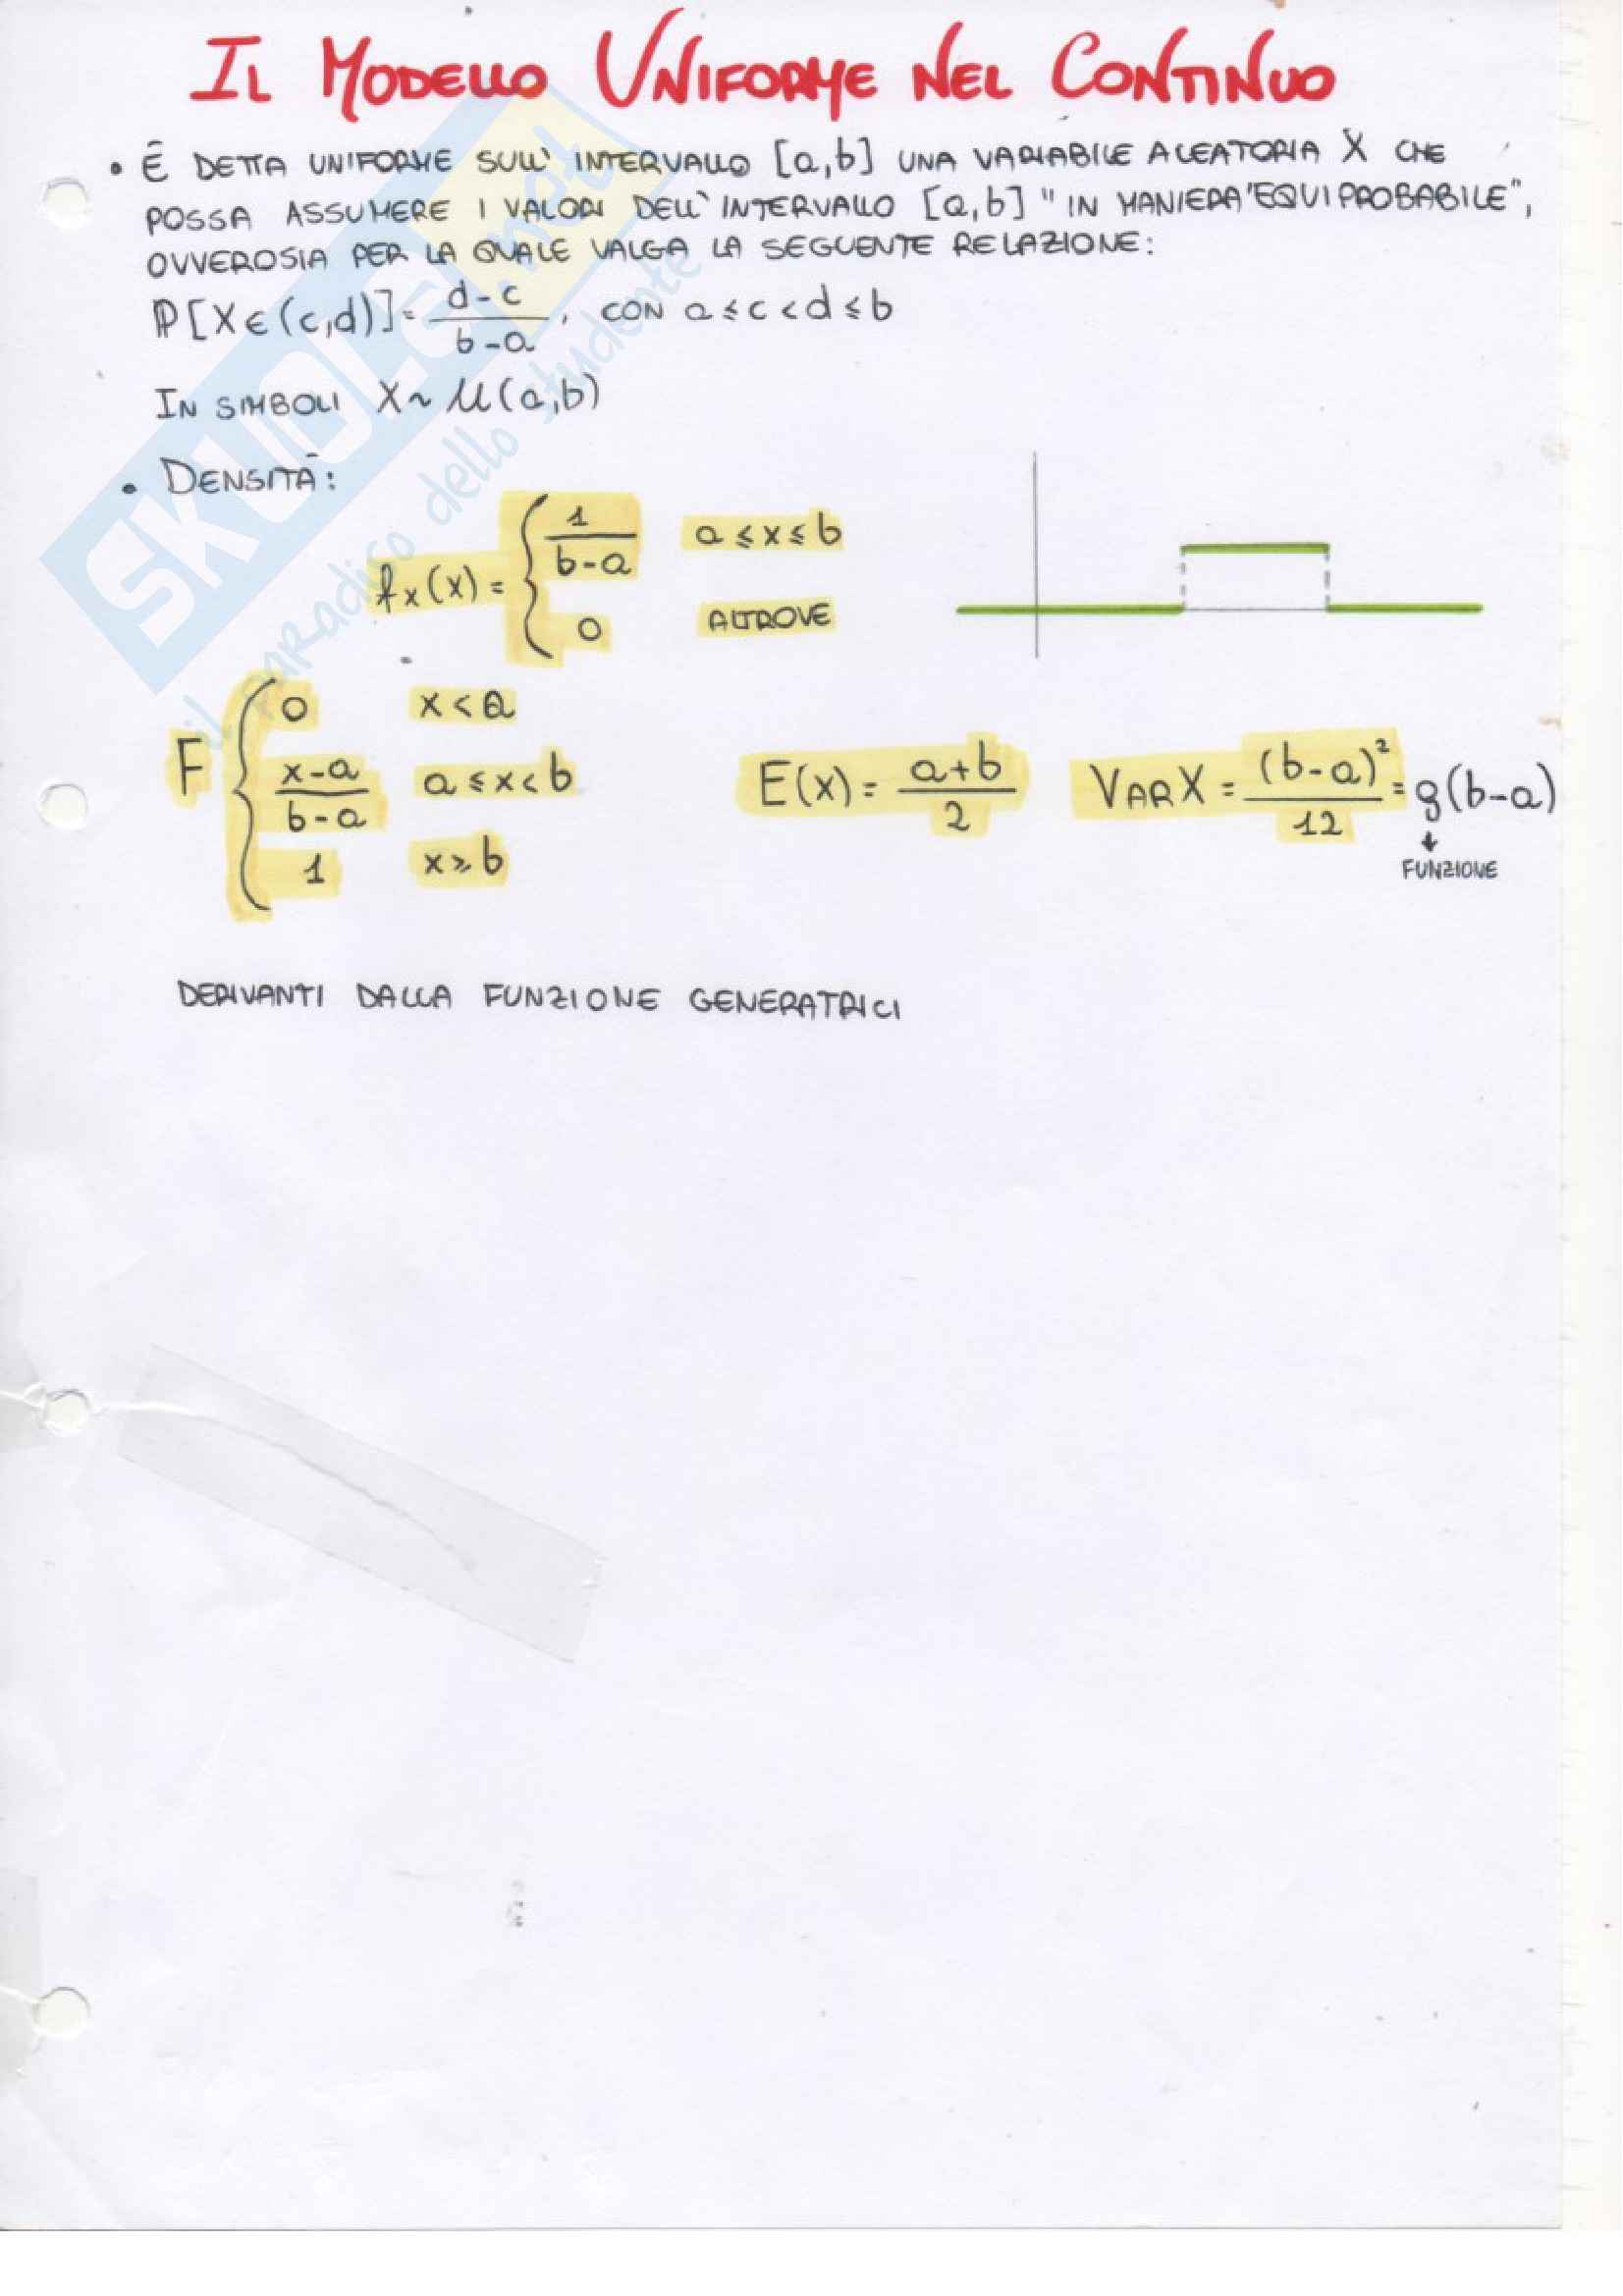 IL MODELLO UNIFORME NEL CONTINUO
• È DETTA UNIFORME SULL' INTERVALLO [a,b] UNA VARIABILE ALEATORIA X CHE
POSSA ASSUMERE I VALORI DELL'INTERVALLO [a,b] "IN MANIERA "EQUIPROBABILE",
OVVEROSIA PER LA QUALE VALGA LA SEGUENTE RELAZIONE:
P[X∈(c,d)] = (d-c)/(b-a), CON a≤c<d≤b
IN SIMBOLI X~U(a,b)
• DENSITÀ:
fx(x) = { 1/(b-a) a≤x≤b
0 ALTROVE
F { 0 x<a
(x-a)/(b-a) a≤x<b
1 x≥b
E(x) = (a+b)/2 VAR X = (b-a)²/12 = g(b-a)
↓
FUNZIONE
DERIVANTI DALLA FUNZIONE GENERATRICI
SKUOLA.net
il paradiso dello studente